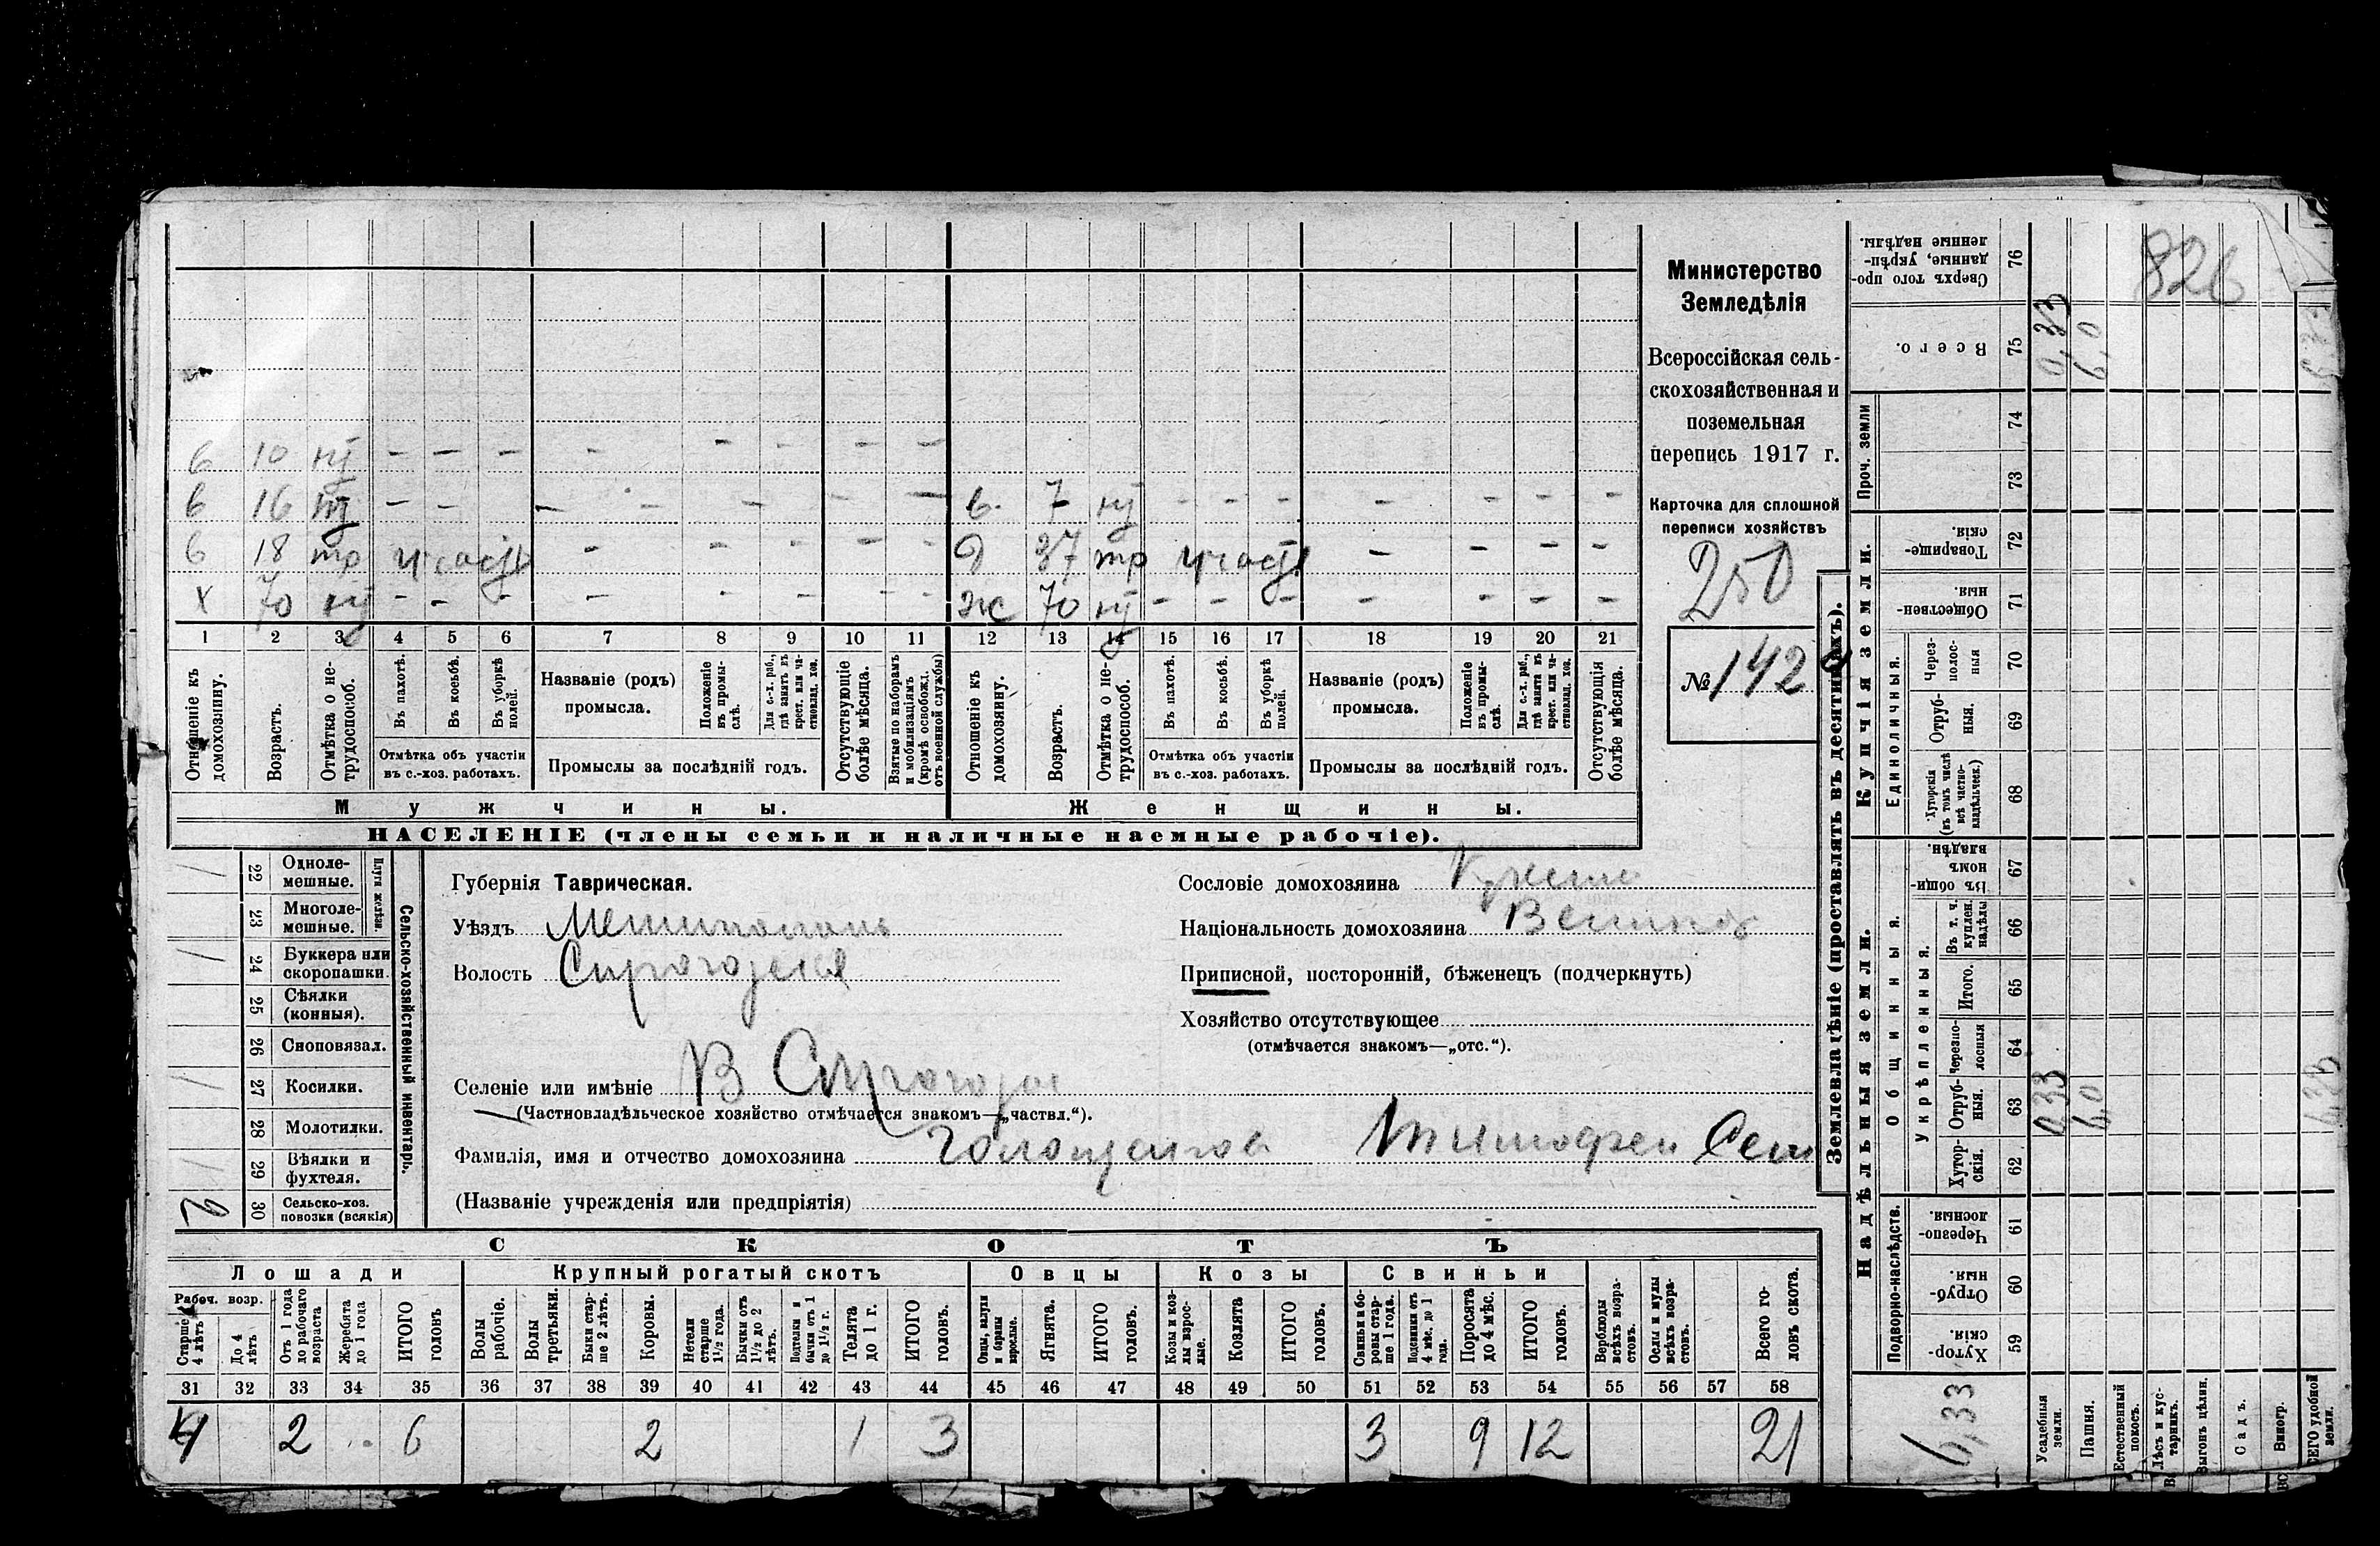 Министерство
Земледѣлія
Всероссійская сель-
скохозяйственная и
поземельная
перепись 1917 г.
Карточка для сплошной
переписи хозяйствъ
250
№ 142
826
в 10 нт - - - - - - - -
в 16 нт - - - - - - - - в. 7 нт - - - - - - -
в 18 тр участ - - - - - д 37 тр участ - - - -
х 70 нт - - - - - - - - ж 70 нт - - - - - - -
1 2 3 4 5 6 7 8 9 10 11 12 13 14 15 16 17 18 19 20 21
Отношеніе къ домохозяину.
Возрастъ.
Отмѣтка о не-трудоспособ.
Въ пахотѣ.
Въ косьбѣ.
Въ уборкѣ полей.
Отмѣтка объ участіи
въ с.-хоз. работахъ.
Названіе (родъ)
промысла.
Положеніе въ промы-слѣ.
Для с.-х. раб., гдѣ занятъ въ крест. или ча-стновлад. хоз.
Промыслы за послѣдній годъ.
Отсутствующіе болѣе мѣсяца.
Взятые по наборамъ и мобилизаціямъ (кромѣ освобожд. отъ военной службы)
Отношеніе къ домохозяину.
Возрастъ.
Отмѣтка о не-трудоспособ.
Въ пахотѣ.
Въ косьбѣ.
Въ уборкѣ полей.
Отмѣтка объ участіи
въ с.-хоз. работахъ.
Названіе (родъ)
промысла.
Положеніе въ промы-слѣ.
Для с.-х. раб., гдѣ занята въ крест. или ча-стновлад. хоз.
Промыслы за послѣдній годъ.
Отсутствующія болѣе мѣсяца.
Мужчины.
Женщины.
НАСЕЛЕНІЕ (члены семьи и наличные наемные рабочіе).
Сельско-хозяйственный инвентарь.
Плуги желѣзн.
1 22 Одноле-мешные.
23 Многоле-мешные.
1 24 Буккера или скоропашки.
25 Сѣялки (конныя).
26 Сноповязал.
1 27 Косилки.
28 Молотилки.
1 29 Вѣялки и фухтеля.
2 30 Сельско-хоз. повозки (всякія)
Губернія Таврическая.
Уѣздъ Мелитополь
Волость
Селеніе или имѣніе В
(Частновладѣльческое хозяйство отмѣчается знакомъ—„частвл.“).
Фамилія, имя и отчество домохозяина Тимофей Сем
(Названіе учрежденія или предпріятія)
Сословіе домохозяина Крест
Національность домохозяина
Приписной, посторонній, бѣженецъ (подчеркнуть)
Хозяйство отсутствующее
(отмѣчается знакомъ—„отс.“).
СКОТЪ
Лошади
Крупный рогатый скотъ
Овцы
Козы
Свиньи
Рабоч. возр.
Старше 4 лѣтъ
До 4 лѣтъ
Отъ 1 года до рабочаго возраста
Жеребята до 1 года
ИТОГО головъ
Волы рабочіе.
Волы третьяки.
Быки стар-ше 2 лѣтъ.
Коровы.
Нетели старше 1½ года.
Бычки отъ 1½ до 2 лѣтъ.
Подтелки и бычки отъ 1 до 1½ г.
Телята до 1 г.
ИТОГО головъ.
Овцы, валухи и бараны взрослые.
Ягнята.
ИТОГО головъ.
Козы и коз-лы взрос-лые.
Козлята
ИТОГО головъ.
Свиньи и бо-ровы стар-ше 1 года.
Подсвинки отъ 4 мѣс. до 1 года
Поросята до 4 мѣс.
ИТОГО головъ.
Верблюды всѣхъ возра-стовъ.
Ослы и мулы всѣхъ возра-стовъ.
Всего го-ловъ скота.
31 32 33 34 35 36 37 38 39 40 41 42 43 44 45 46 47 48 49 50 51 52 53 54 55 56 57 58
4 2 6 2 1 3 3 9 12 21
Землевладѣніе (проставлять въ десятинахъ).
Надѣльныя земли.
Купчія земли.
Подворно-наслѣдств.
Общинныя.
Укрѣпленныя.
Единоличныя.
Проч. земли
Хутор-скія. 59
Отруб-ныя. 60
Черезпо-лосныя. 61
Хутор-скія. 62
Отруб-ныя. 63
Черезпо-лосныя 64
Итого. 65
Въ т. ч. куплен. надѣлы 66
Въ общин-номъ владѣн. 67
Хуторскія (въ томъ числѣ всѣ частно-владѣльческ.) 68
Отруб-ныя. 69
Через-полос-ныя 70
Обществен-ныя. 71
Товарище-скія. 72
73
74
Всего. 75
Сверхъ того про-данные, укрѣп-ленные надѣлы. 76
6,33
Усадебныя земли. 0,33 0,33
Пашня. 6,0 6,0
Естественный покосъ.
Лѣсъ и кус-тарникъ.
Выгонъ цѣлин.
Садъ.
Виногр.
6,33 6,33